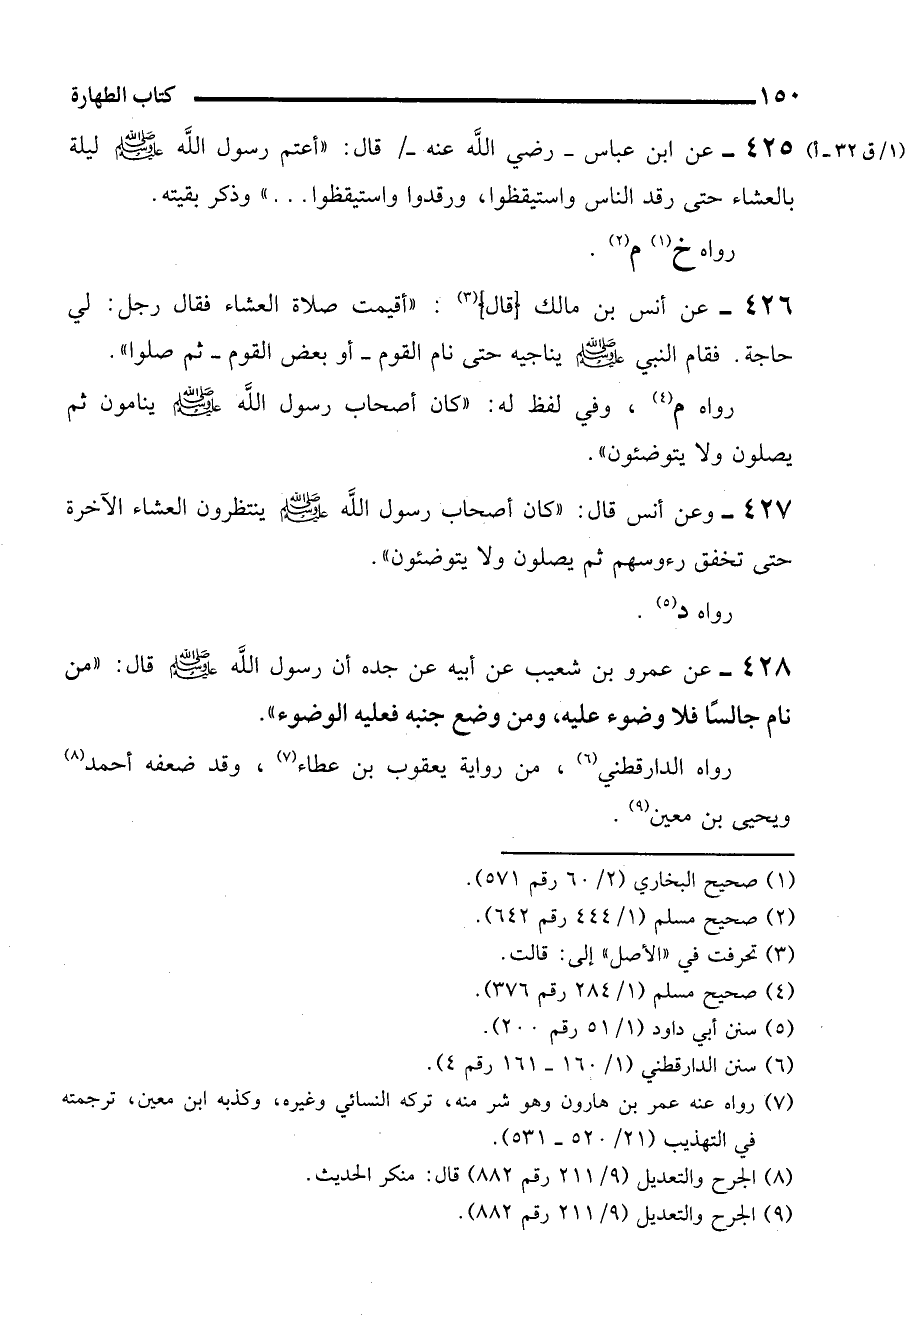 ١٥٠ كتاب الطهارة
(١/ق ٣٢ـ أ) ٤٢٥ ـ عن ابن عباس ـ رضي اللَّه عنه ـ/ قال: «أعتم رسول اللَّه ﷺ ليلة
بالعشاء حتى رقد الناس واستيقظوا، ورقدوا واستيقظوا. . .» وذكر بقيته.
رواه خ(١) م(٢) .
٤٢٦ ـ عن أنس بن مالك {قال}(٣) : «أقيمت صلاة العشاء فقال رجل: لي
حاجة. فقام النبي ﷺ يناجيه حتى نام القوم ـ أو بعض القوم ـ ثم صلوا».
رواه م(٤) ، وفي لفظ له: «كان أصحاب رسول اللَّه ﷺ ينامون ثم
يصلون ولا يتوضئون».
٤٢٧ ـ وعن أنس قال: «كان أصحاب رسول اللَّه ﷺ ينتظرون العشاء الآخرة
حتى تخفق رءوسهم ثم يصلون ولا يتوضئون».
رواه د(٥) .
٤٢٨ ـ عن عمرو بن شعيب عن أبيه عن جده أن رسول اللَّه ﷺ قال: «من
نام جالسًا فلا وضوء عليه، ومن وضع جنبه فعليه الوضوء».
رواه الدارقطني(٦) ، من رواية يعقوب بن عطاء(٧) ، وقد ضعفه أحمد(٨)
ويحيى بن معين(٩) .
(١) صحيح البخاري (٢/ ٦٠ رقم ٥٧١).
(٢) صحيح مسلم (١/ ٤٤٤ رقم ٦٤٢).
(٣) تحرفت في «الأصل» إلى: قالت.
(٤) صحيح مسلم (١/ ٢٨٤ رقم ٣٧٦).
(٥) سنن أبي داود (١/ ٥١ رقم ٢٠٠).
(٦) سنن الدارقطني (١/ ١٦٠ ـ ١٦١ رقم ٤).
(٧) رواه عنه عمر بن هارون وهو شر منه، تركه النسائي وغيره، وكذبه ابن معين، ترجمته
في التهذيب (٢١/ ٥٢٠ ـ ٥٣١).
(٨) الجرح والتعديل (٩/ ٢١١ رقم ٨٨٢) قال: منكر الحديث.
(٩) الجرح والتعديل (٩/ ٢١١ رقم ٨٨٢).